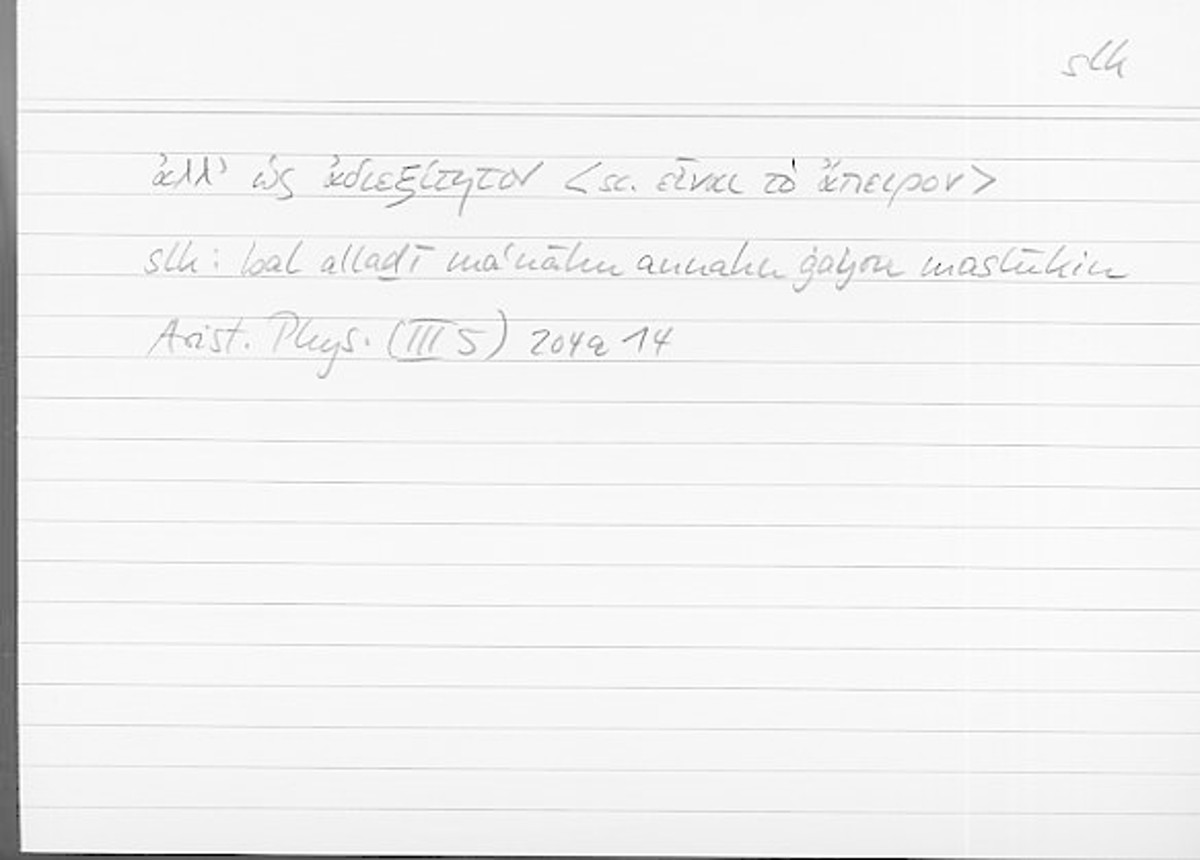 slk
ἀλλ' ὡς ἀδιεξίτητον <sc. εἶναι τὸ ἄπειρον>
slk: bal alladī ma'nāhu annahu ġayru maslūkin
Arist. Phys. (III 5) 204a 14